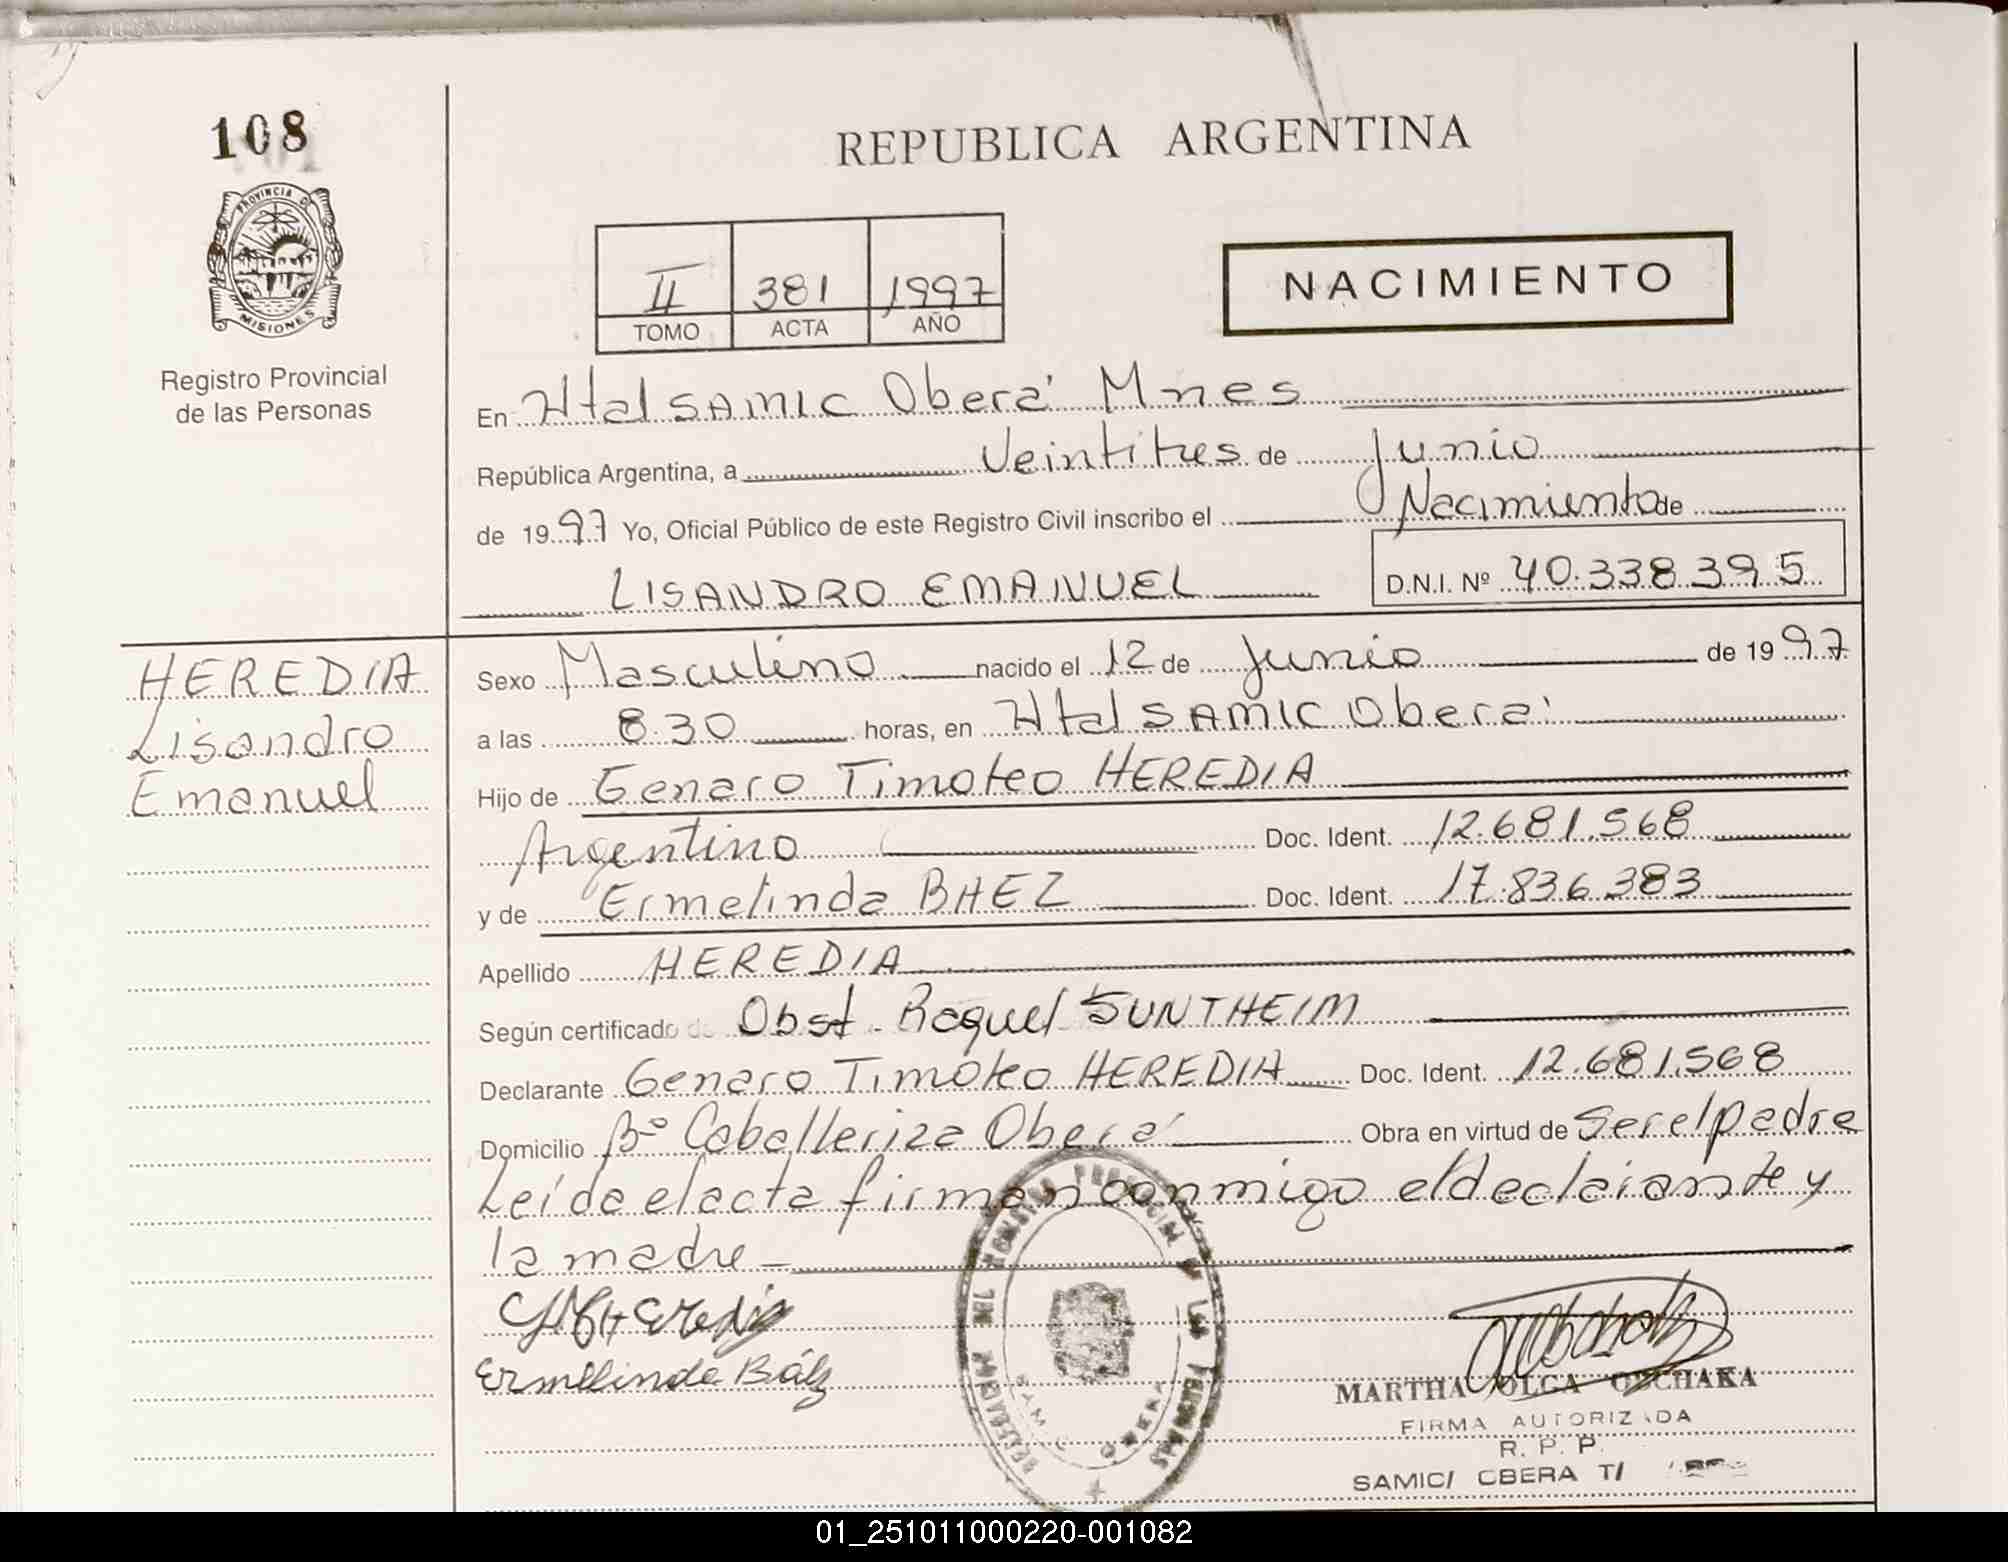 108
PROVINCIA D
MISIONES
Registro Provincial
de las Personas
REPUBLICA ARGENTINA
II 381 1997
TOMO ACTA AÑO
NACIMIENTO
En Htal SAMIC Oberá Mnes
República Argentina, a Veintitres de Junio
de 1997 Yo, Oficial Público de este Registro Civil inscribo el Nacimiento de
LISANDRO EMANUEL D.N.I. Nº 40.338.395
HEREDIA
Lisandro
Emanuel
Sexo Masculino nacido el 12 de Junio de 1997
a las 8.30 horas, en Htal SAMIC Oberá
Hijo de Genaro Timoteo HEREDIA
Argentino Doc. Ident. 12.681.568
y de Ermelinda BAEZ Doc. Ident. 17.836.383
Apellido HEREDIA
Según certificado de Obst. Raquel SUNTHEIM
Declarante Genaro Timoteo HEREDIA Doc. Ident. 12.681.568
Domicilio Bº Caballeriza Oberá Obra en virtud de ser el padre
Leída el acta firman conmigo el declarante y
la madre
Heredia
Ermelinda Báez
MARTHA OLGA
FIRMA AUTORIZADA
R. P. P.
SAMIC/ OBERA T/
01_251011000220-001082